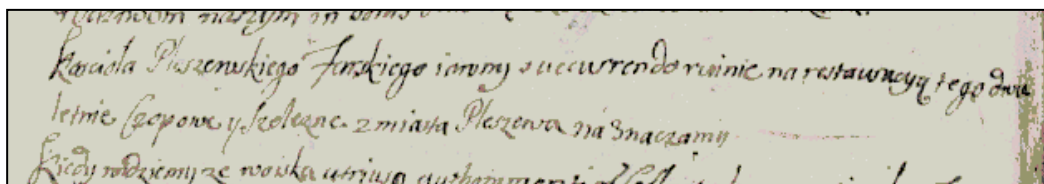 naszym in
Kosciola Pleszewskiego Farskiego iawny succurrendo ruinie na restauracyą tego dwu
letnie Czopowe y szelezne z miasta Pleszewa na Znaczamy
Kiedy widziemy ze woiska utriusq authoramenti